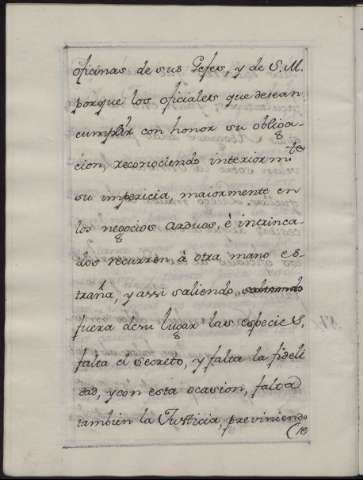 oficinas de sus Gefes, y de S. M.
porque los oficiales que desean
cumplir con honor su obliga-
cion, reconociendo interiorm.te
su impericia, maiormente en
los negocios arduos, è intrinca-
dos recurren à otra mano es-
traña, y assi saliendo
fuera de su lugar las especies,
falta el secreto, y falta la fideli
dad, y con esta ocasion, falta
tambien la Justicia, previniendo
se